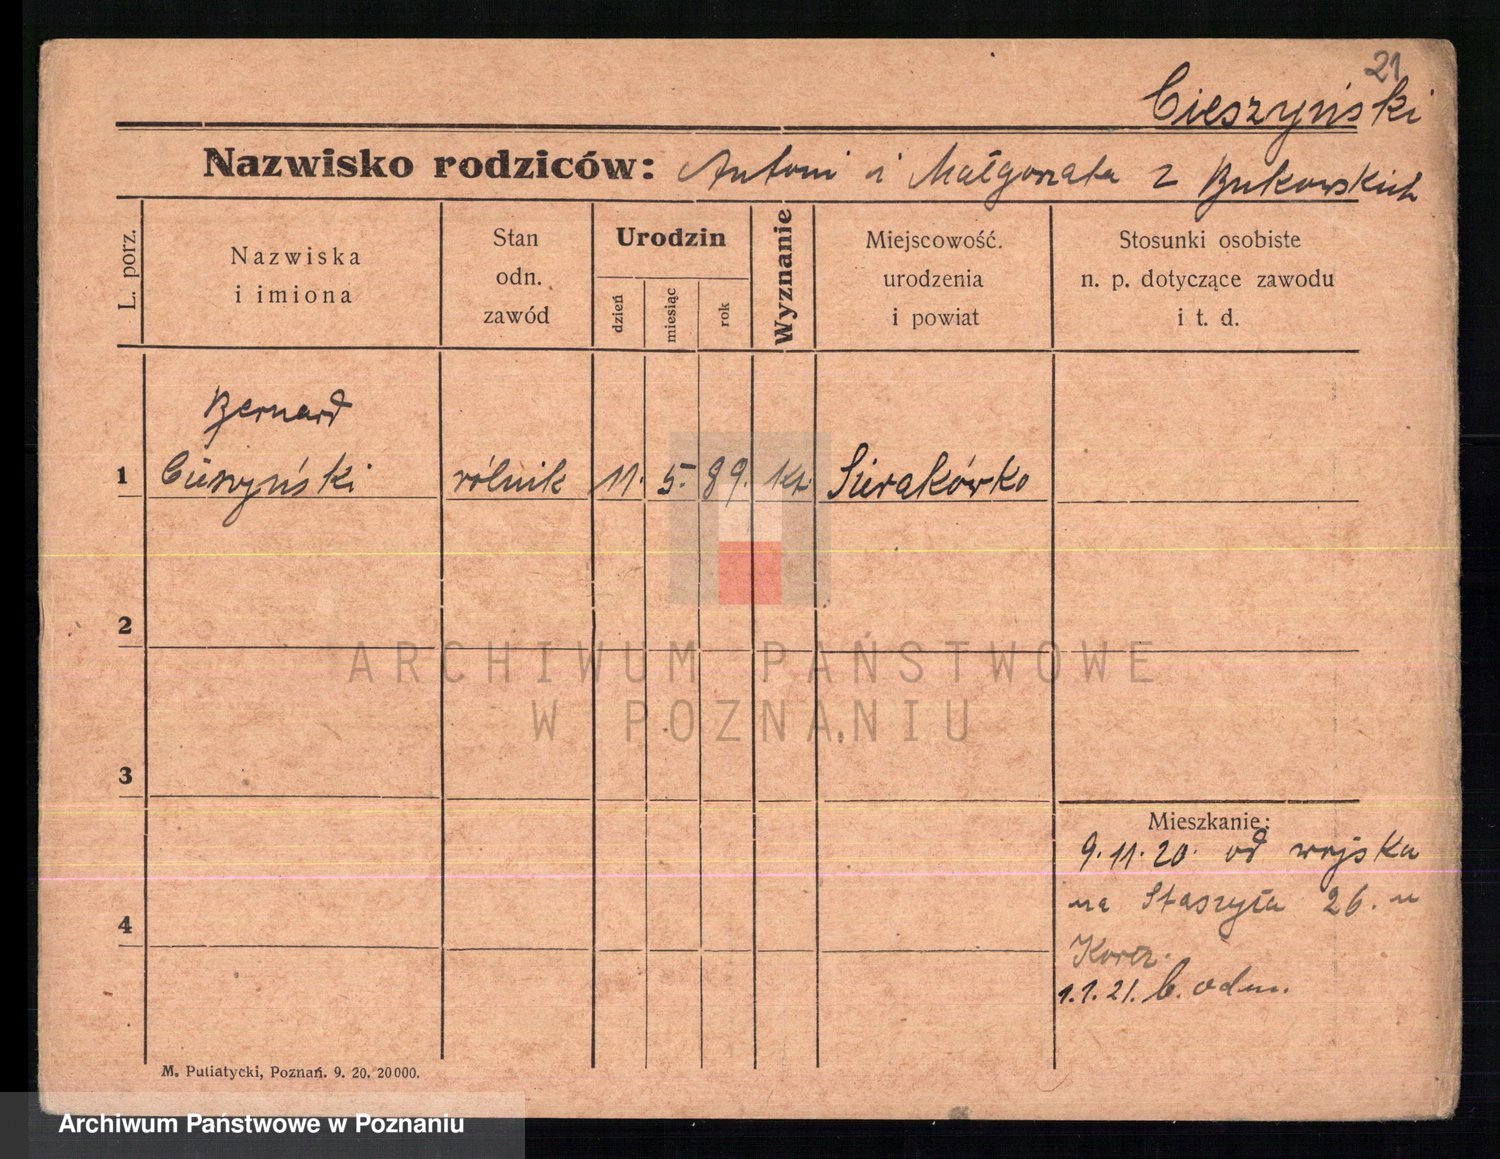 21
Cieszyński
Nazwisko rodziców: Antoni i Małgorzata z Bukowskich
L. porz.
Nazwiska
i imiona
Stan
odn.
zawód
Urodzin
dzień
miesiąc
rok
Wyznanie
Miejscowość.
urodzenia
i powiat
Stosunki osobiste
n. p. dotyczące zawodu
i t. d.
Bernard
1 Cieszyński rólnik 11. 5. 89. kt. Sierakówko
2
ARCHIWUM PAŃSTWOWE
W POZNANIU
3
Mieszkanie:
9.11.20. od wojska
na Staszyca 26. u
4
1.1.21. b. odm.
M. Putiatycki, Poznań. 9. 20. 20000.
Archiwum Państwowe w Poznaniu